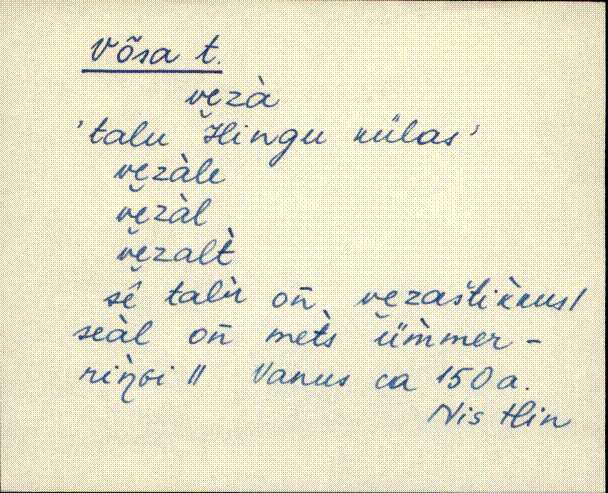 Võsa t.
ve̮zà
'talu Hingu külas'
ve̮zàle
ve̮zàl
ve̮zalt̀
sê talù on̄ ve̮zaštik̀kus/
seàl on̄ met̀s üm̀mer-
riŋ̀gi // Vanus ca 150 a.
Nis Hin